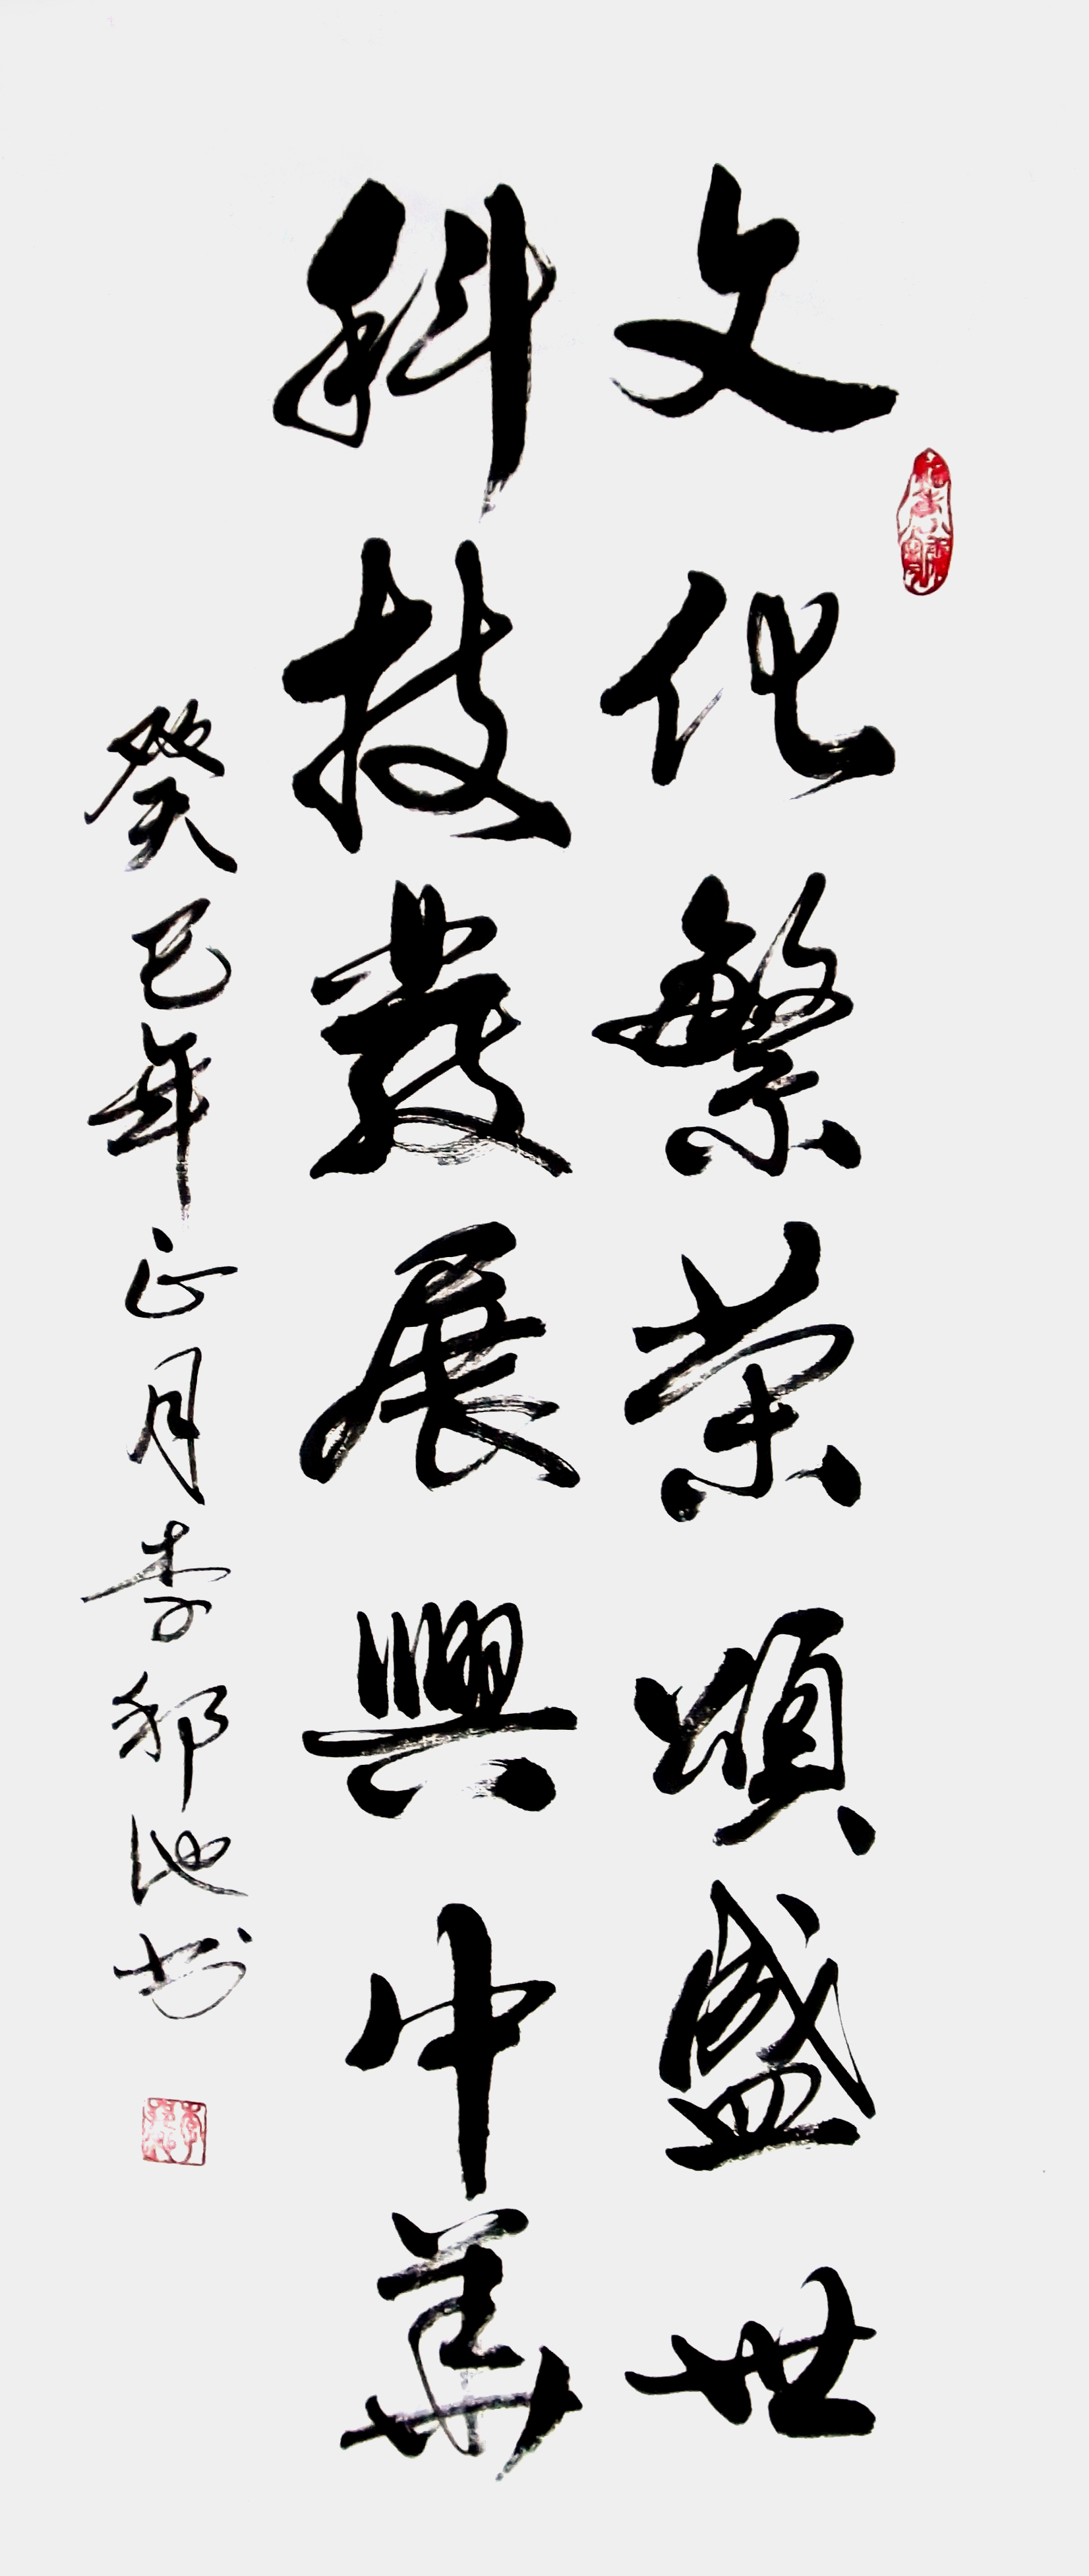 文化繁荣頌盛世
科技發展興中華
癸巳年正月李邦池书